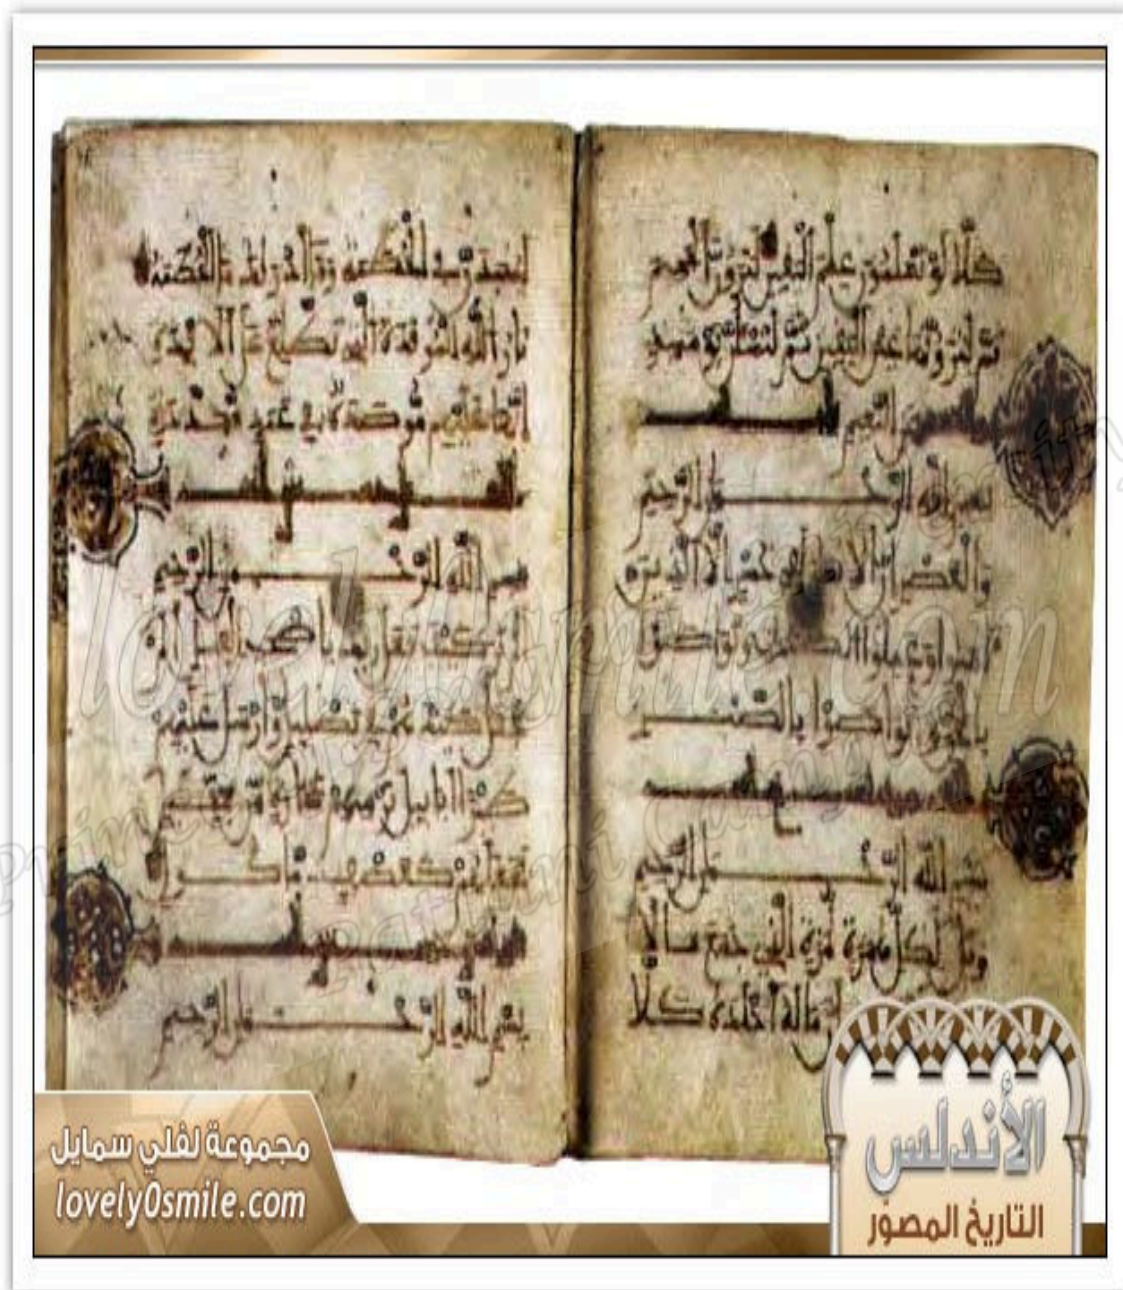 كلا لو تعلمون علم اليقين لترون الجحيم
ثم لترونها عين اليقين ثم لتسئلن يومئذ
عن النعيم
بسم الله الرحمن الرحيم
والعصر ان الانسن لفي خسر الا الذين
ءامنوا وعملوا الصلحت وتواصوا
بالحق وتواصوا بالصبر
بسم الله الرحمن الرحيم
ويل لكل همزة لمزة الذي جمع مالا
ان ماله اخلده كلا
لينبذن في الحطمة وما ادريك ما الحطمة
نار الله الموقدة التي تطلع على الافدة
انها عليهم موصدة في عمد ممددة
بسم الله الرحمن الرحيم
الم تر كيف فعل ربك باصحب الفيل الم
يجعل كيدهم في تضليل وارسل عليهم
طيرا ابابيل ترميهم بحجارة من سجيل
فجعلهم كعصف ماكول
بسم الله الرحمن الرحيم
مجموعة لفلي سمايل
lovely0smile.com
الأندلس
التاريخ المصور